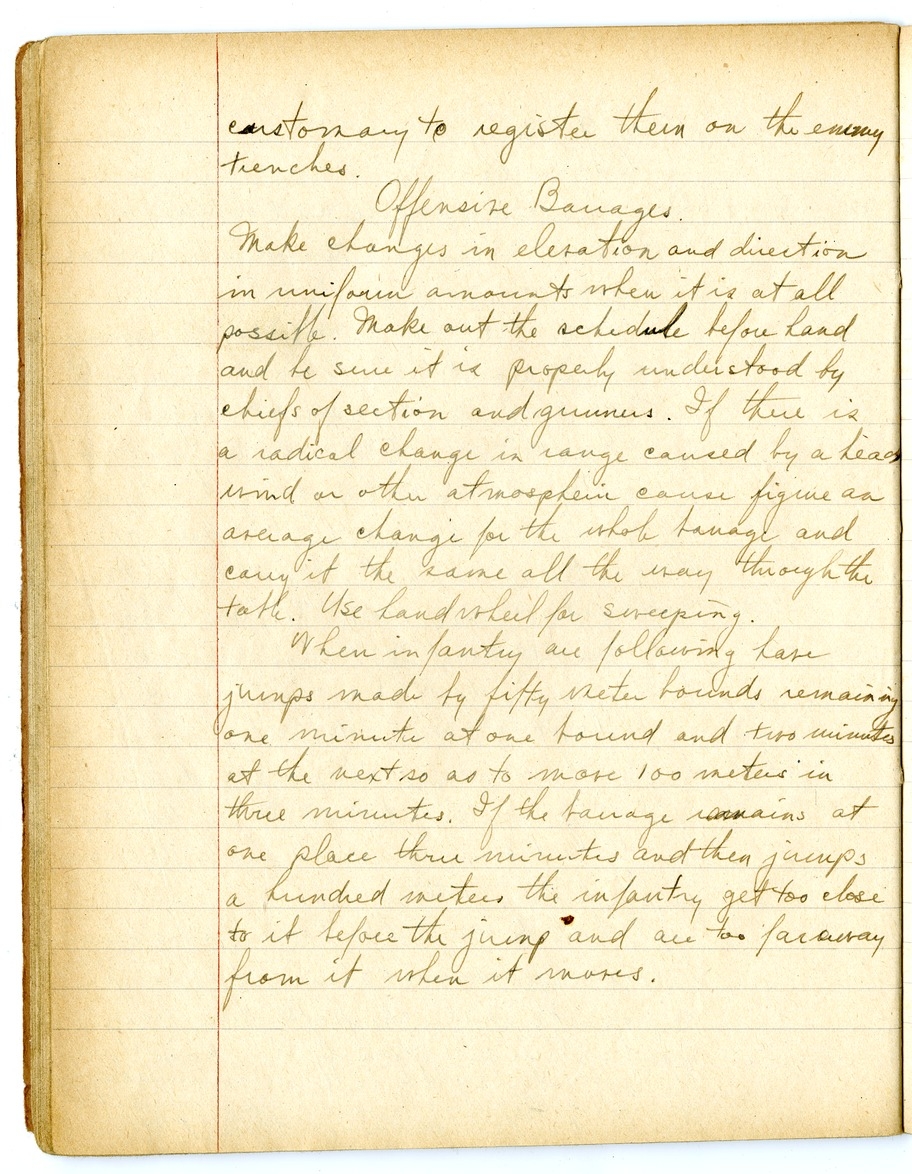 customary to register them on the enemy
trenches.
Offensive Barrages.
Make changes in elevation and direction
in uniform amounts when it is at all
possible. Make out the schedule before hand
and be sure it is properly understood by
chiefs of section and gunners. If there is
a radical change in range caused by a head
wind or other atmospheric cause figure an
average change for the whole barrage and
carry it the same all the way through the
table. Use handwheel for sweeping.
When infantry are following have
jumps made by fifty meter bounds remaining
one minute at one bound and two minutes
at the next so as to move 100 meters in
three minutes. If the barrage remains at
one place three minutes and then jumps
a hundred meters the infantry get too close
to it before the jump and are too far away
from it when it moves.